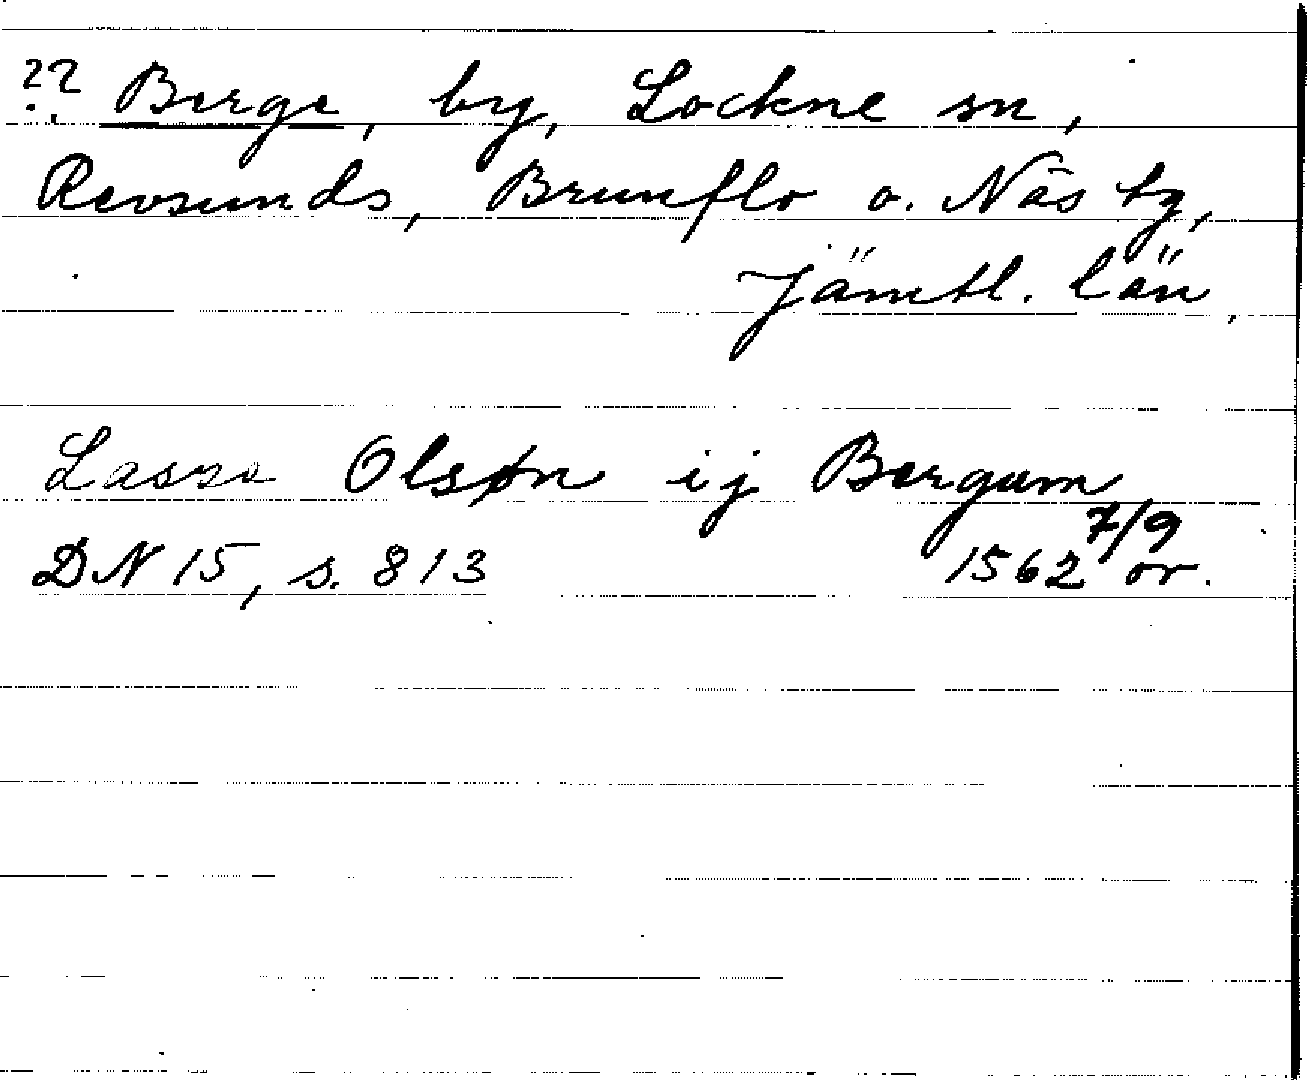 ?? Berge, by, Lockne sn,
Revsunds, Brunflo o. Näs tg,
Jämtl. län,
Lasse Olsøn ij Bergum
DN 15, s. 813 1562 7/9 or.